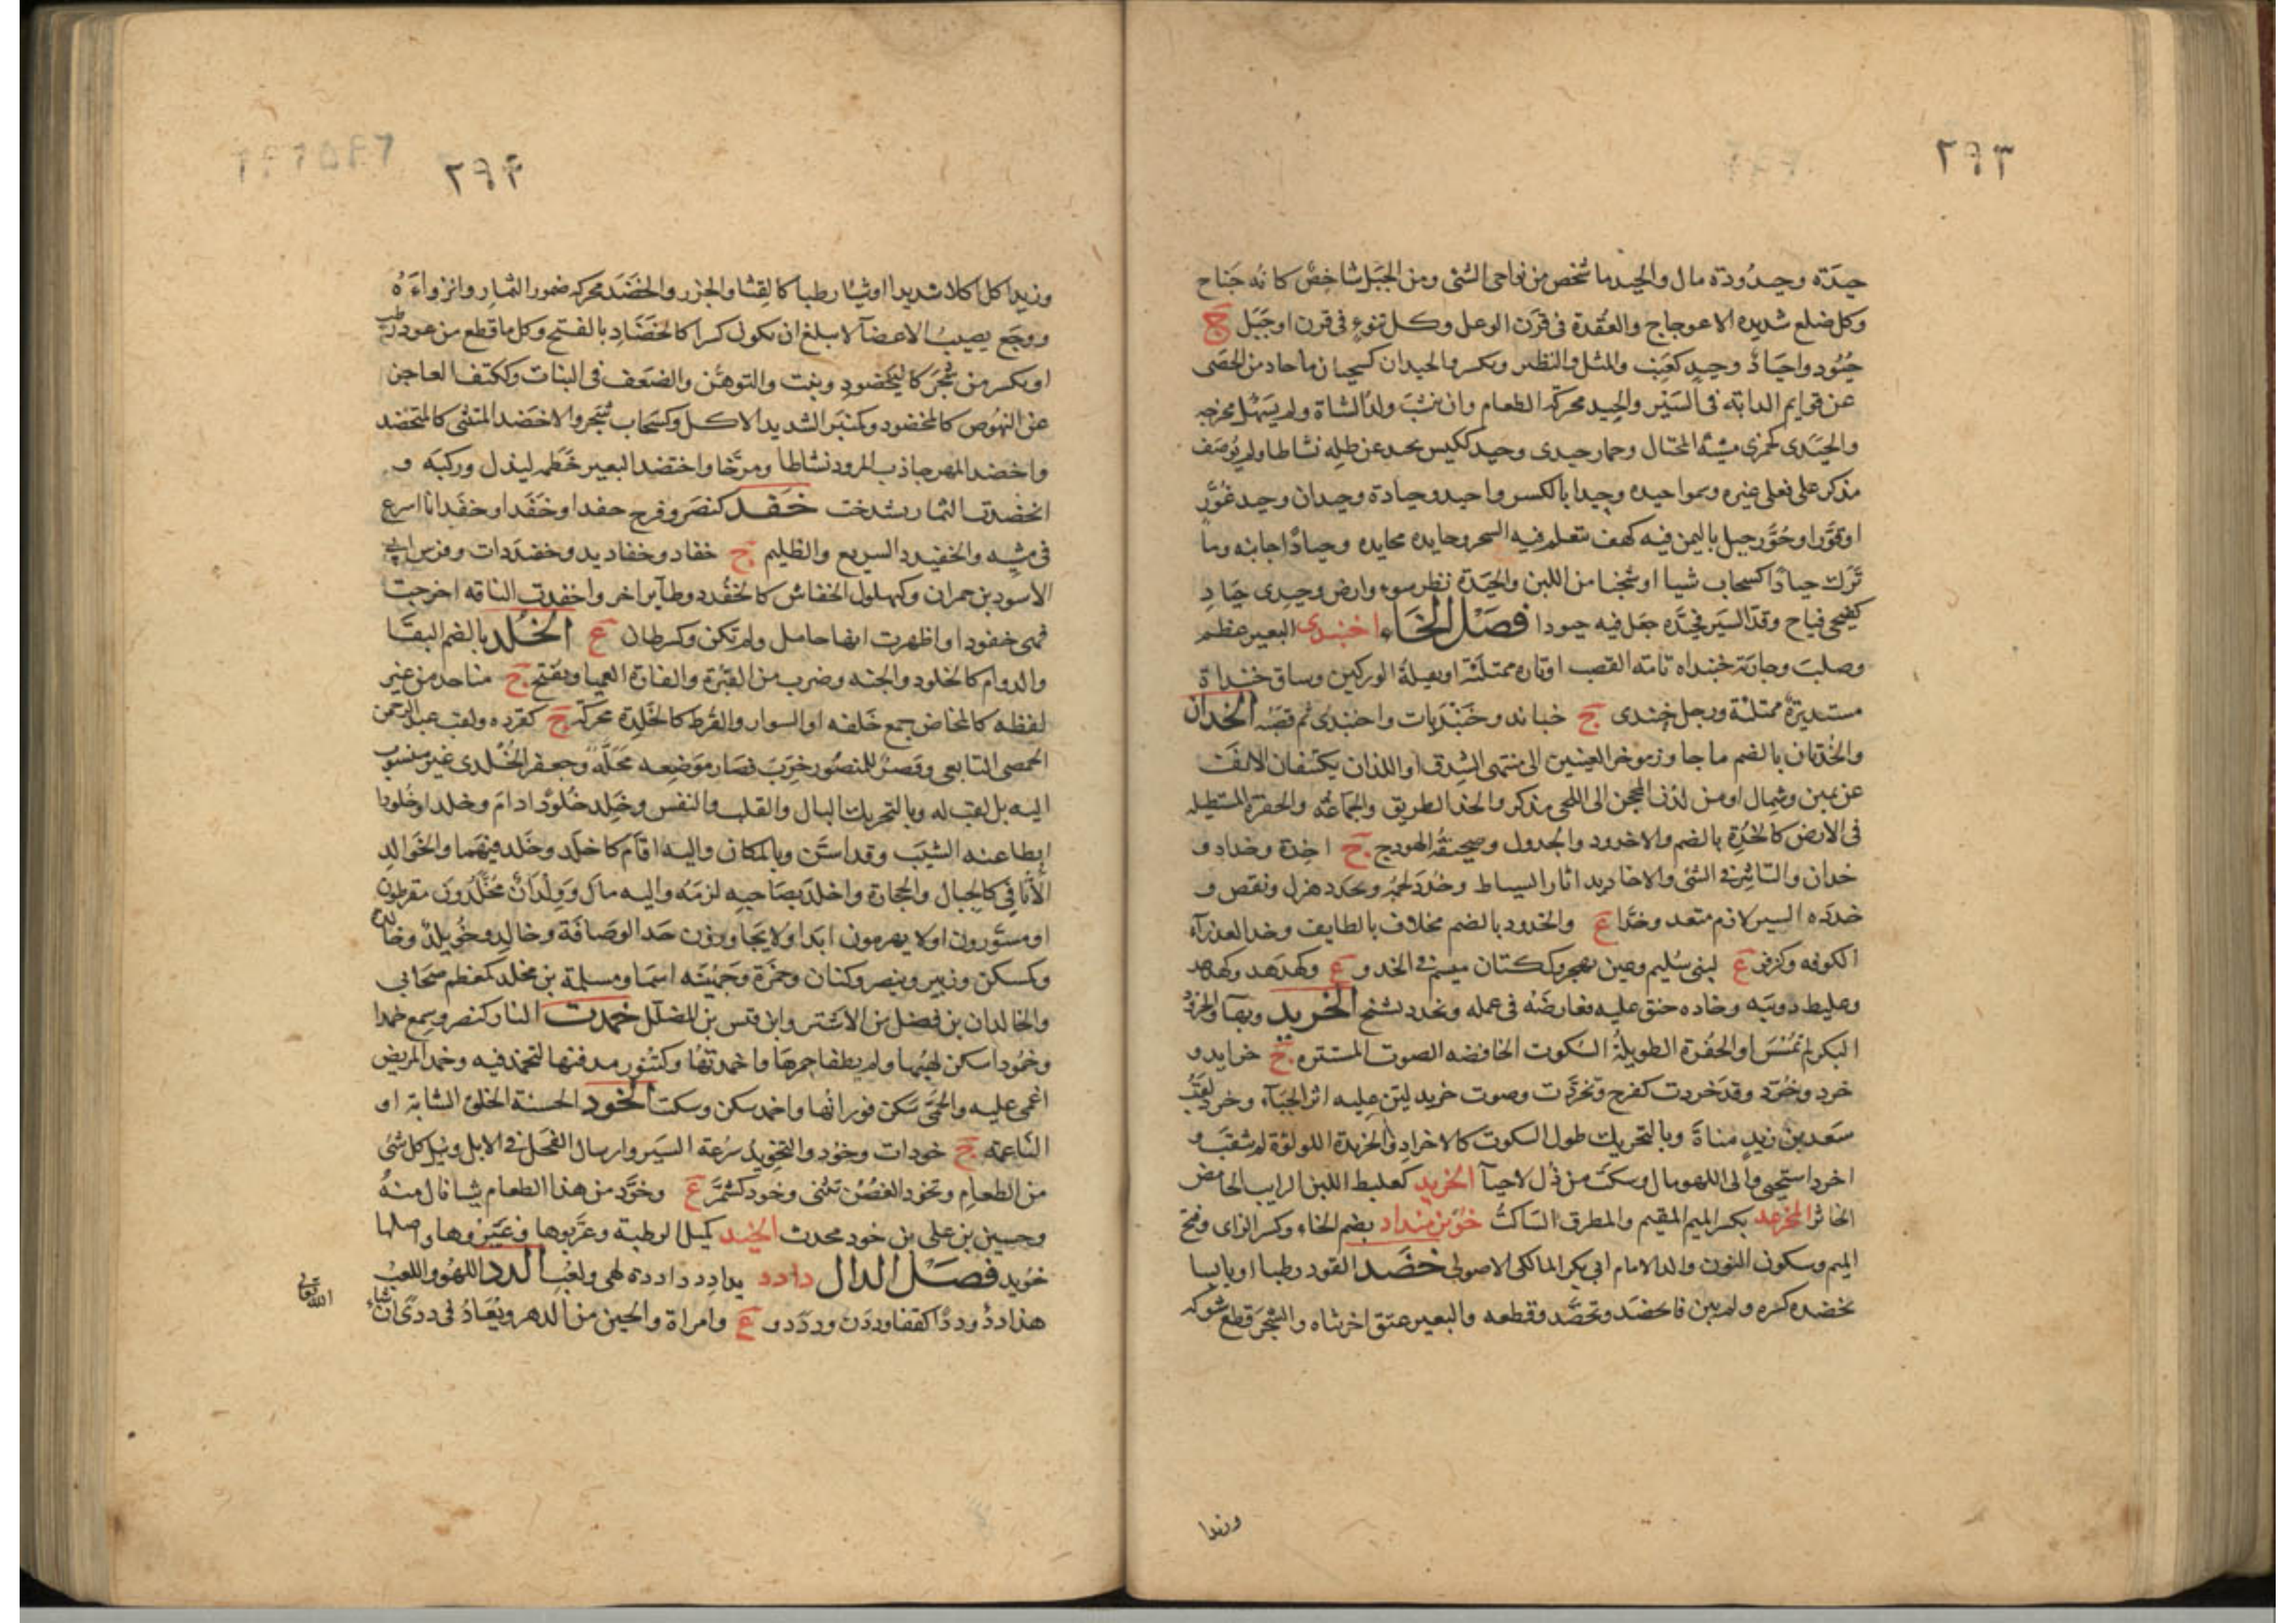 ٢٩٣
حيدة وحيدودة مال والحيد ما شخص من نواحى الشئ ومن الجبل شاخص كانه جناح
وكل ضلع شديده الاعوجاج والعقدة فى قرن الوعل وكل نتوء فى قرن او جبل ج
حيود واحياد وحيد كعنب والمثل والنظير ويكسر والحيدان كسحبان ما حاد من الحصى
عن قوايم الدابة فى السير والحيد محركة الطعام وان ينشب ولد الشاة ولم يسهل مخرجه
والحيدى كجمزى مشية المختال وحمار حيدى وحيد ككيس يحيد عن ظله نشاطا ولم يوصف
مذكر على فعلى غيره وسموا حيده وحيدا بالكسر واحيد وحيادة وحيدان وحيد عور
او قور او حور جبل باليمن فيه كهف يتعلم فيه السحر وحايده محايده وحيادا جانبه وما
ترك حيادا كسحاب شيا او شخبا من اللبن والحيدة نظر سوء وارض وحيدى حياد
كفيحى فياح وقد السير فحيده جعل فيه حيودا فصل الخاء اخبندى البعير عظم
وصلب وجارية خبنداه تامة القصب او تاره ممتلئة او ثقيلة الوركين وساق خبنداة
مستديرة ممتلئة ورجل خبندى ج خباند وخبنديات واخبندى تم قصبه الخدان
والخدتان بالضم ما جاوز موخر العينين الى منتهى الشدق او اللذان يكتنفان الانف
عن يمين وشمال او من لدن المحجر الى اللحى مذكر والخد الطريق والجماعة والحفرة المستطيله
فى الارض كالخدة بالضم والاخدود والجدول وصحيفة الهودج ج اخدة وخداد و
خدان والتاثير فى الشئ والاخاديد اثار السياط وخدد لحمه وتخدد هزل ونقص و
خدده السير لازم متعد وخداء ع والخدود بالضم مخلاف بالطايف وخد العذراء
الكوفه وكزفر ع لبنى سليم وعين بهجر وككتان ميسم فى الخد و ع وكهدهد وكهدهد
وعلبط دويبه وخاده حنق عليه فعارضه فى عمله وتخدد تشنج الخريد وبهاء والخرود
البكر لم تمسس او الحفرة الطويلة السكوت الخافضه الصوت المستتره ج خرايد و
خرد وخرد وقد خردت كفرح وتخردت وصوت خريد لين عليه اثر الحياء وخرد لقب
سعد بن زيد مناة وبالتحريك طول السكوت كالاخراد والخريدة اللولوة لم تثقب و
اخرد استحيى والى اللهو مال وسكت من ذل لا حياء الخربد كعلبط اللبن الرايب الحامض
الخاثر المخرمد بكسر الميم المقيم والمطرق الساكت خويز منداد بضم الخاء وكسر الزاى وفتح
الميم وسكون النون والد الامام ابى بكر المالكى الاصولى خضد القود رطبا او يابسا
يخضده كسره ولم يبن فانخضد وتخضد وقطعه والبعير عنق اخر ثناه والشجر قطع شوكه
وزيدا
٢٩٤
وزيدا كل اكلا شديدا او شيا رطبا كالقثا والجزر والخضد محركه ضمور الثمار وانزواءه
ووجع يصيب الاعضآ لا يبلغ ان يكون كسرا كالخضاد بالفتح وكل ما قطع من عود رطب
او يكسر من شجر كاليخضود ونبت والتوهن والضعف فى النبات وككتف العاجز
عن النهوص كالمخضود وكمنبر الشديد الاكل وكسحاب شجر والاخضد المتثنى كالمتخضد
واخضد المهر جاذب المرود نشاطا ومرحا واختضد البعير خطمه ليذل وركبه و
انخضدت الثمار تشدخت خفد كنصر وفرح خفدا وخفدا وخفدانا اسرع
فى مشيه والخفيدد السريع والظليم ج خفاد وخفاديد وخفيددات وفرس ابى
الاسود بن حمران وكبهلول الخفاش كالخفدد وطآير اخر واخفدت الناقه اخرجت
فهى خفود او اظهرت انها حامل ولم تكن وكسرطان ع الخلد بالضم البقا
والدوام كالخلود والجنه وضرب من القبرة والفارة العميا ويفتح ج مناجد من غير
لفظه كالمخاض جمع خلفه او السوار والقرط كالخلدة محركة ج كقرده ولقب عبد الرحمن
الحمصى التابعى وقصر للمنصور خرب فصار موضعه محلة وجعفر الخلدى غير منسوب
اليه بل لقب له وبالتحريك البال والقلب والنفس وخلد خلودا دام وخلدا وخلودا
ابطا عنه الشيب وقد اسن وبالمكان واليه اقام كاخلد وخلد فيهما والخوالد
الاثافى كالجبال والحجارة واخلد بصاحبه لزمه واليه مال وولدان مخلدون مقرطون
او مسورون او لا يهرمون ابدا ولا يجاوزون حد الوصافة وخالد وخويلد وخالدة
وكسكن وزبير وينصر وكتان وحمزة وجهينه اسما ومسلمة بن مخلد كمعظم صحابى
والخالدان بن نضلة بن الاشتر وابن قيس بن المضلل خمدت النار كنصر وسمع خمدا
وخمودا سكن لهبها ولم يطفا جمرها واخمدتها وكتنور مدفنها لتخمد فيه وخمد المريض
اغمى عليه والحمى سكن فورانها واخمد سكن وسكت الخود الحسنة الخلق الشابة او
الناعمه ج خودات وخود والتخويد سرعة السير وارسال الفحل فى الابل ونيل كل شئ
من الطعام وتخود الغصن تثنى وخود كشمر ع وخود من هذا الطعام شيا نال منه
وحسين بن على بن خود محدث الخيد كميل الرطبة وعربوها وغيروها واصلها
خويد فصل الدال دادد يدادد داددة لهى ولعب الدد اللهو واللعب
هذا دد ودد اكقفا وددن وددد و ع وامراة والحين من الدهر ويعاد فى ددى ان شاء
الله تعالى